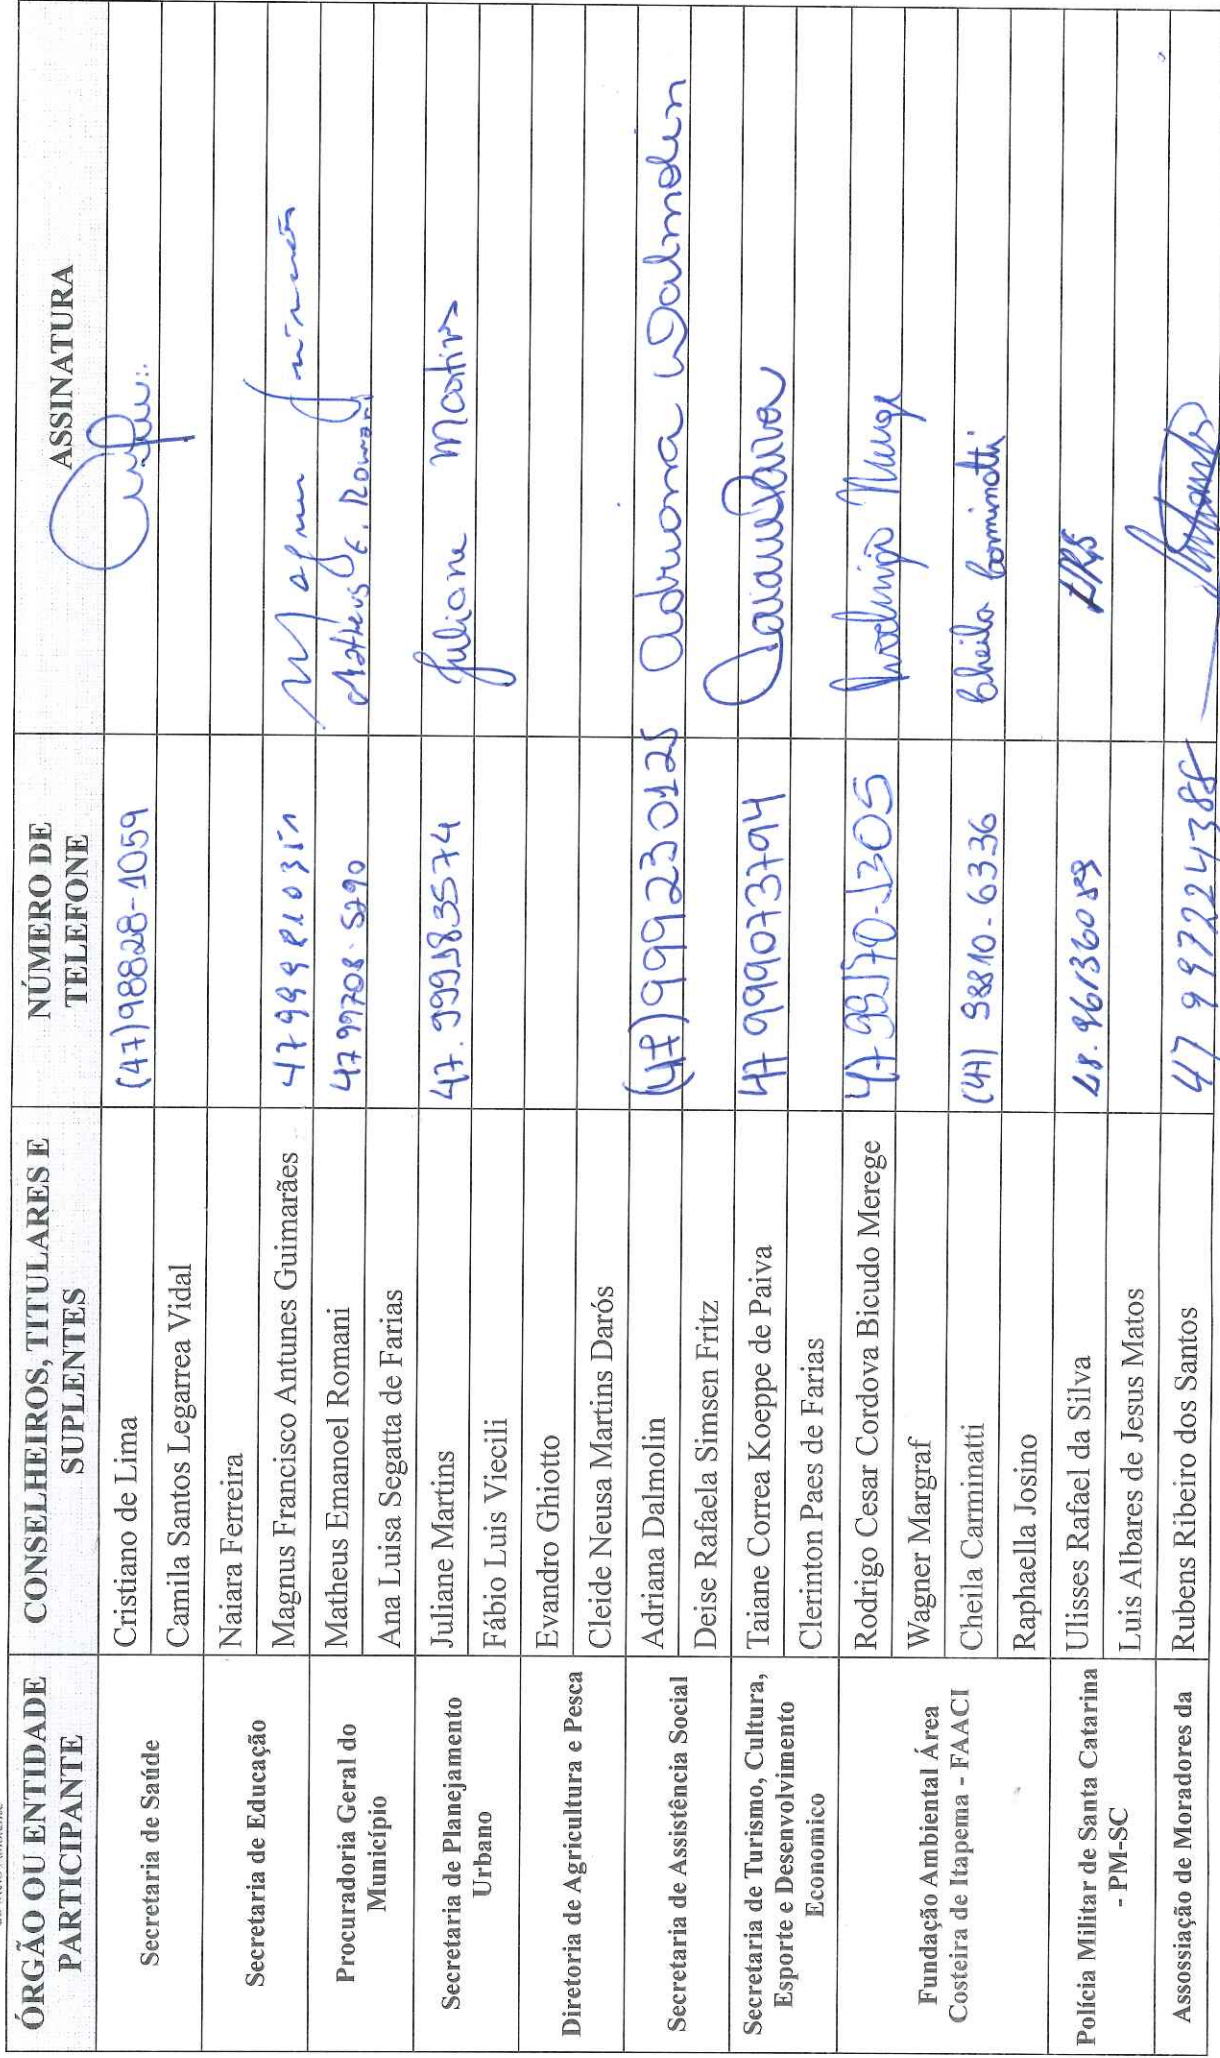 ÓRGÃO OU ENTIDADE PARTICIPANTE
CONSELHEIROS, TITULARES E SUPLENTES
NÚMERO DE TELEFONE
ASSINATURA
Secretaria de Saúde
Cristiano de Lima (47)98828-1059
Camila Santos Legarrea Vidal
Secretaria de Educação
Naiara Ferreira
Magnus Francisco Antunes Guimarães
Procuradoria Geral do
Município
Matheus Emanoel Romani 47 99708-5290 Matheus E. Romani
Ana Luisa Segatta de Farias
Secretaria de Planejamento
Urbano
Juliane Martins 47. 999183574 Juliane Martins
Fábio Luis Viecili
Diretoria de Agricultura e Pesca
Evandro Ghiotto
Cleide Neusa Martins Darós
Secretaria de Assistência Social
Adriana Dalmolin (47) 999230125 Adriana Dalmolin
Deise Rafaela Simsen Fritz
Secretaria de Turismo, Cultura,
Esporte e Desenvolvimento
Economico
Taiane Correa Koeppe de Paiva 47 999073794
Clerinton Paes de Farias
Fundação Ambiental Área
Costeira de Itapema - FAACI
Rodrigo Cesar Cordova Bicudo Merege 47 99170-1305 Rodrigo Merege
Wagner Margraf
Cheila Carminatti (47) 98810-6336 Cheila Carminatti
Raphaella Josino
Polícia Militar de Santa Catarina
- PM-SC
Ulisses Rafael da Silva 48. 961360089 URS
Luis Albares de Jesus Matos
Assossiação de Moradores da
Rubens Ribeiro dos Santos 47 997224388